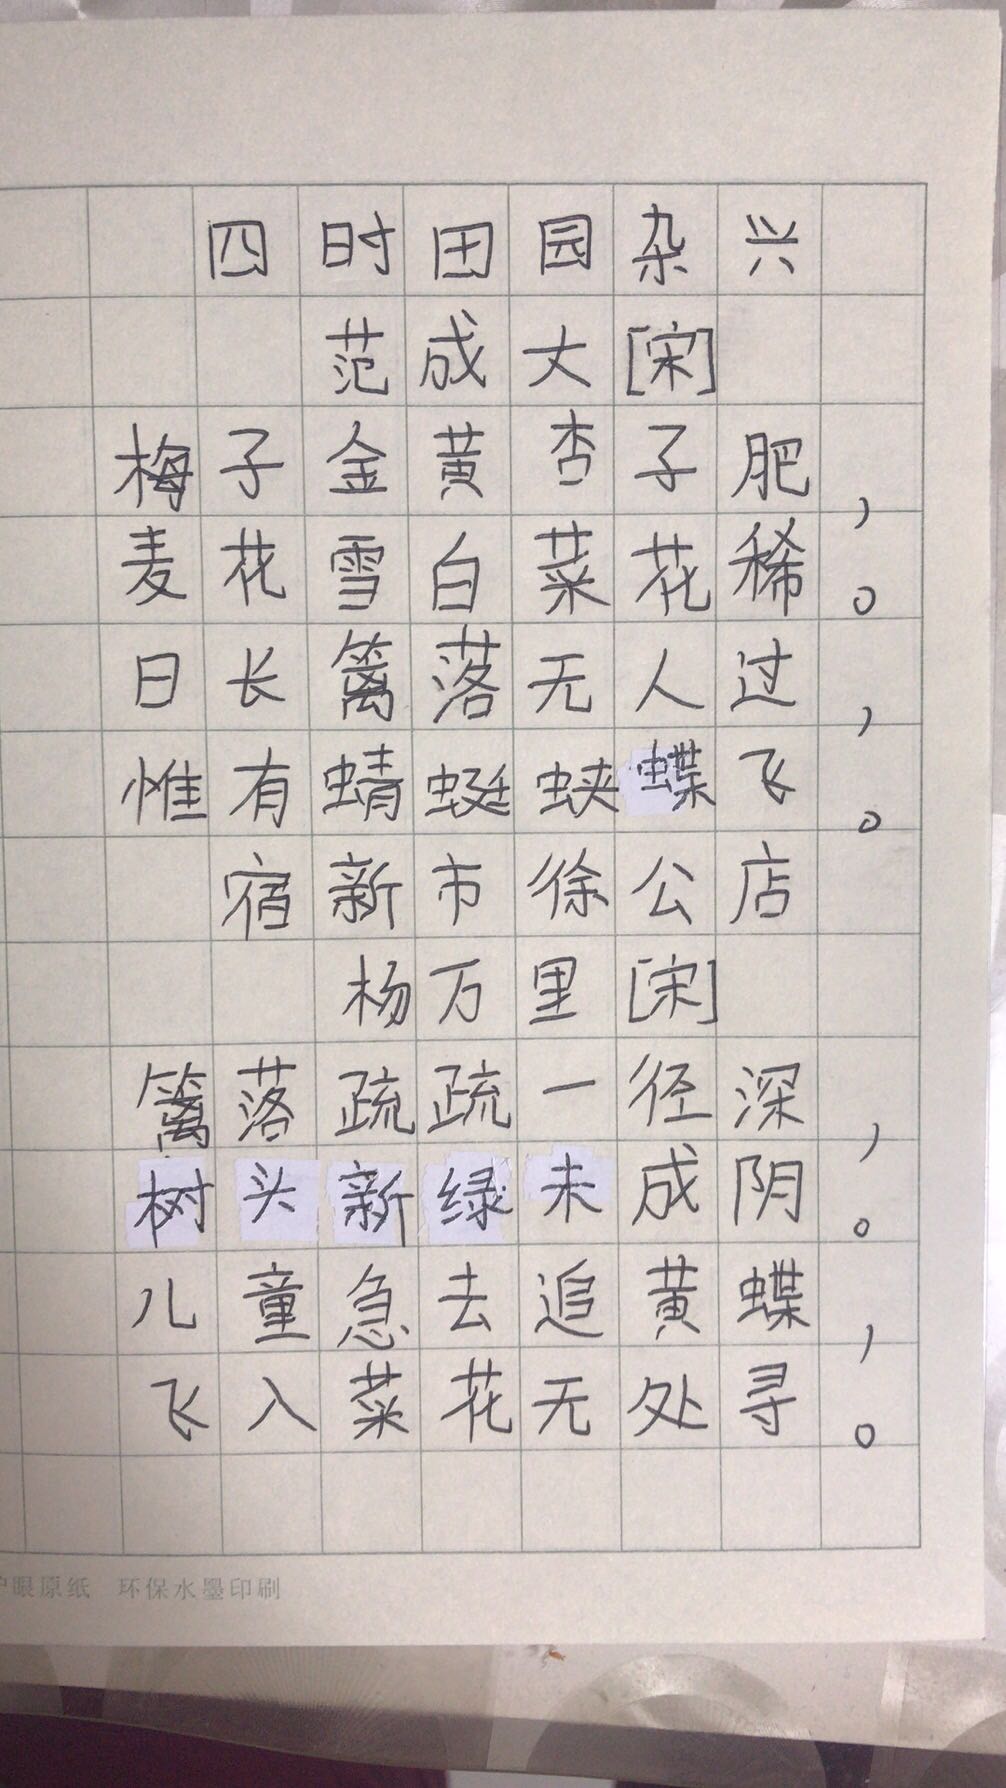 四时田园杂兴
范成大[宋]
梅子金黄杏子肥，
麦花雪白菜花稀。
日长篱落无人过，
惟有蜻蜓蛱蝶飞。
宿新市徐公店
杨万里[宋]
篱落疏疏一径深，
树头新绿未成阴。
儿童急去追黄蝶，
飞入菜花无处寻。
护眼原纸 环保水墨印刷